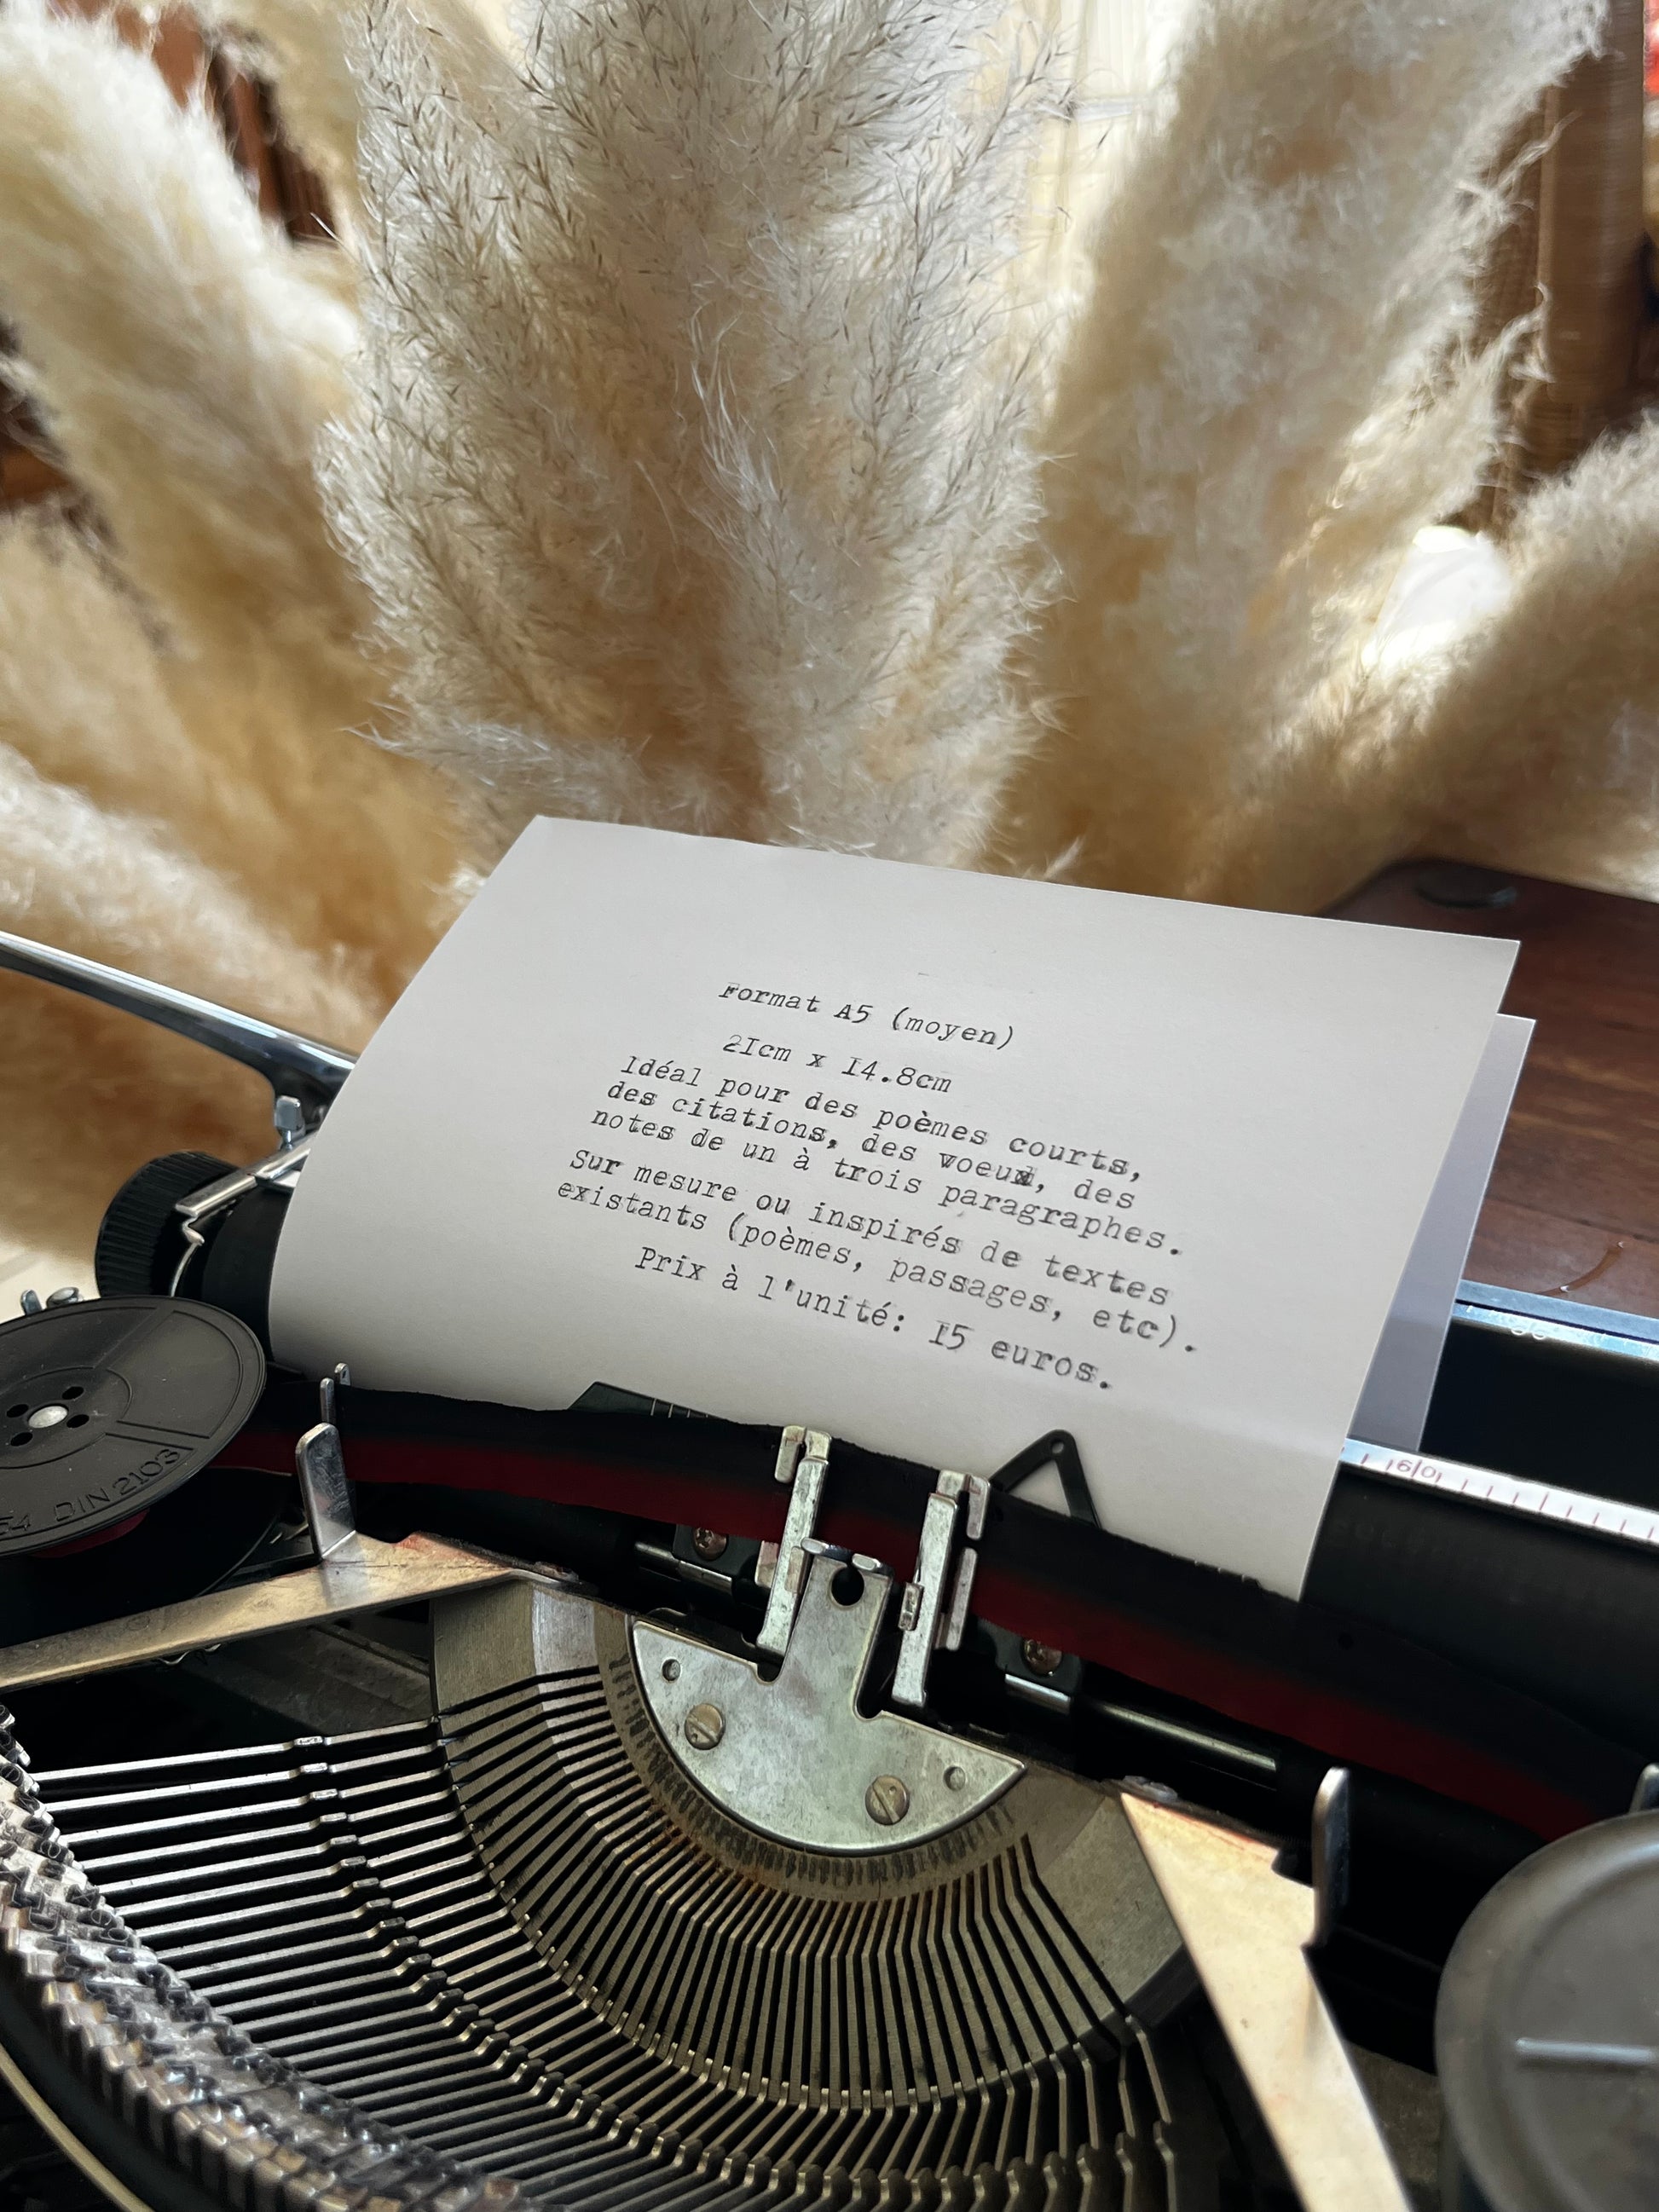 Format A5 (moyen)
21cm x 14.8cm
Idéal pour des poèmes courts,
des citations, des voeux, des
notes de un à trois paragraphes.
Sur mesure ou inspirés de textes
existants (poèmes, passages, etc).
Prix à l'unité: 15 euros.
DIN 2103